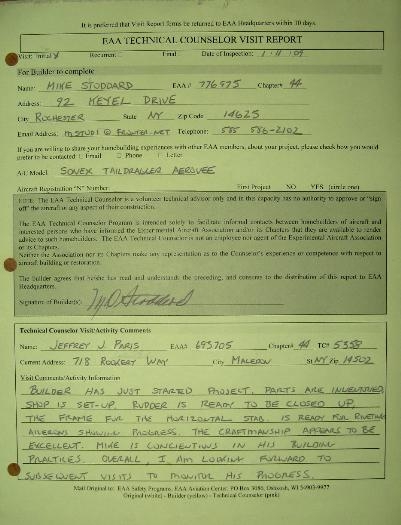 It is preferred that Visit Report forms be returned to EAA Headquarters within 10 days.
EAA TECHNICAL COUNSELOR VISIT REPORT
Visit: Initial Recurrent Final Date of Inspection: 1-11-09
For Builder to complete
Name: MIKE STODDARD EAA# 776975 Chapter# 44
Address: 92 KEYEL DRIVE
City ROCHESTER State NY Zip Code 14625
Email Address: MSTOD1@FRONTIER.NET Telephone: 585 586-2102
If you are willing to share your homebuilding experiences with other EAA members, about your project, please check how you would
prefer to be contacted: □ Email □ Phone □ Letter
A/C Model SONEX TAILDRAGGER AEROVEE
Aircraft Registration "N" Number: First Project NO YES (circle one)
NOTE: The EAA Technical Counselor is a volunteer technical advisor only and in this capacity has no authority to approve or "sign
off" the aircraft or any aspect of their construction.
The EAA Technical Counselor Program is intended solely to facilitate informal contacts between homebuilders of aircraft and
interested persons who have informed the Experimental Aircraft Association and/or its Chapters that they are available to render
advice to such homebuilders. The EAA Technical Counselor is not an employee nor agent of the Experimental Aircraft Association
or its Chapters.
Neither the Association nor its Chapters make any representation as to the Counselor's experience or competence with respect to
aircraft building or restoration.
The builder agrees that he/she has read and understands the preceding, and consents to the distribution of this report to EAA
Headquarters.
Signature of Builder(s):
Technical Counselor Visit/Activity Comments
Name: JEFFREY J. PARIS EAA# 693705 Chapter# 44 TC# 5358
Current Address: 718 ROOKERY WAY City MACEDON St NY Zip 14502
Visit Comments/Activity Information
BUILDER HAS JUST STARTED PROJECT. PARTS ARE INVENTORIED,
SHOP IS SET-UP. RUDDER IS READY TO BE CLOSED UP.
THE FRAME FOR THE HORIZONTAL STAB. IS READY FOR RIVETING
AILERONS SHOWING PROGRESS. THE CRAFTMANSHIP APPEARS TO BE
EXCELLENT. MIKE IS CONCIENTIOUS IN HIS BUILDING
PRACTICES. OVERALL, I AM LOOKING FORWARD TO
SUBSEQUENT VISITS TO MONITOR HIS PROGRESS.
Mail Original to: EAA Safety Programs, EAA Aviation Center, PO BOX 3086, Oshkosh, WI 54903-9977.
Original (white) - Builder (yellow) - Technical Counselor (pink)